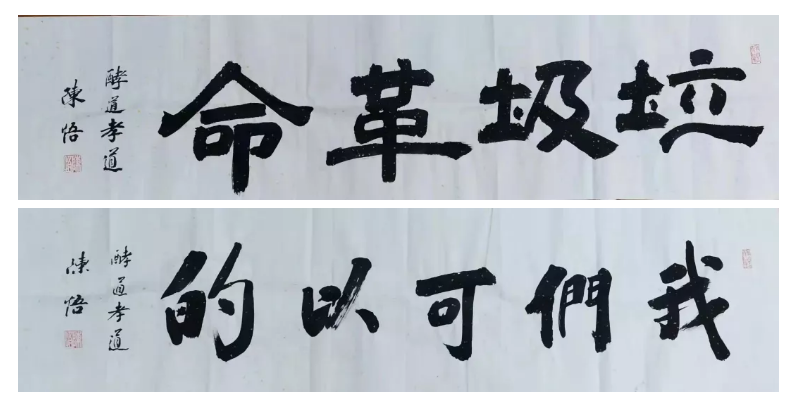 垃圾革命
酵道孝道
陳悟
我們可以的
酵道孝道
陳悟